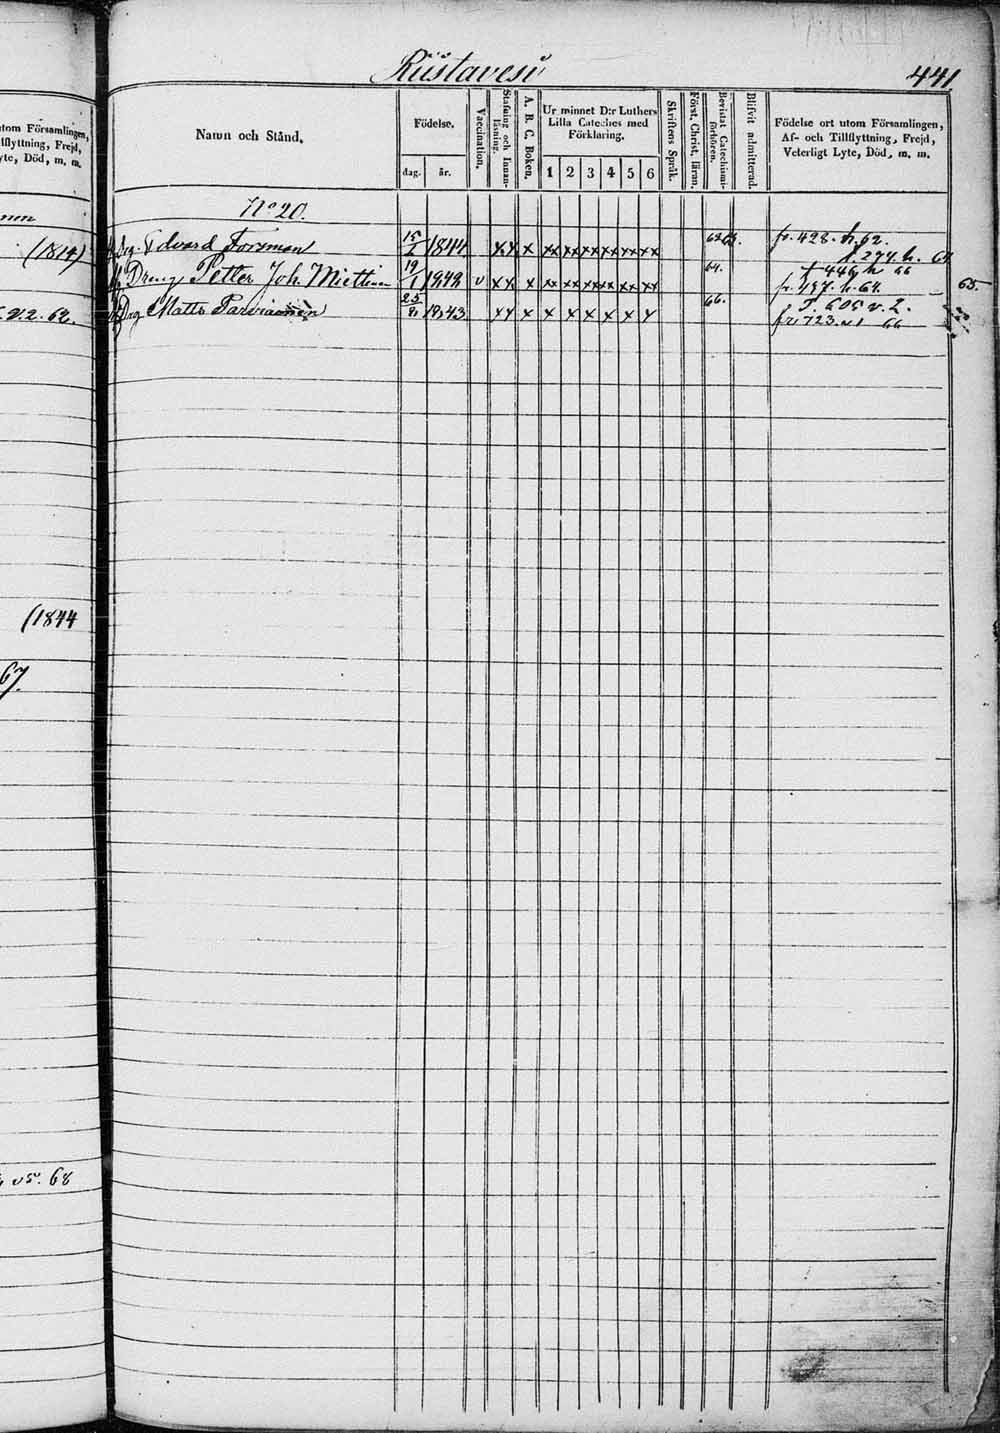 utom Församlingen,
yte, Död, m. m.
(1814)
(1844
67.
68
Riistavesi
441
Namn och Stånd.
Födelse.
dag.
år.
Vaccination.
Stafning och Innan-
läsning.
A. B. C. Boken.
Ur minnet D:r Luthers
Lilla Cateches med
Förklaring.
1 2 3 4 5 6
Skriftens Språk.
Först. Christ. läran.
Bevistat Catechismi-
förhören.
Blifvit admitterad.
Födelse ort utom Församlingen,
Af- och Tillflyttning, Frejd,
Veterligt Lyte, Död, m. m.
No 20.
Drg. Edvard Forsman 15 1844 xx x xx xx xx xx xx xx fr. 428. h. 62.
Dreng Petter Joh. Miettinen 19/1 1842 v xx x xx xx xx xx xx xx 64. fr. 197. h. 64. 65.
Drg Matts Parviainen 25 1843 xx x x x x x x x 66. fr. 723. v 1 66